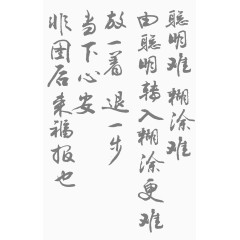 聪明难 糊涂难
由聪明转入糊涂更难
放一著 退一步
当下心安
非图后来福报也